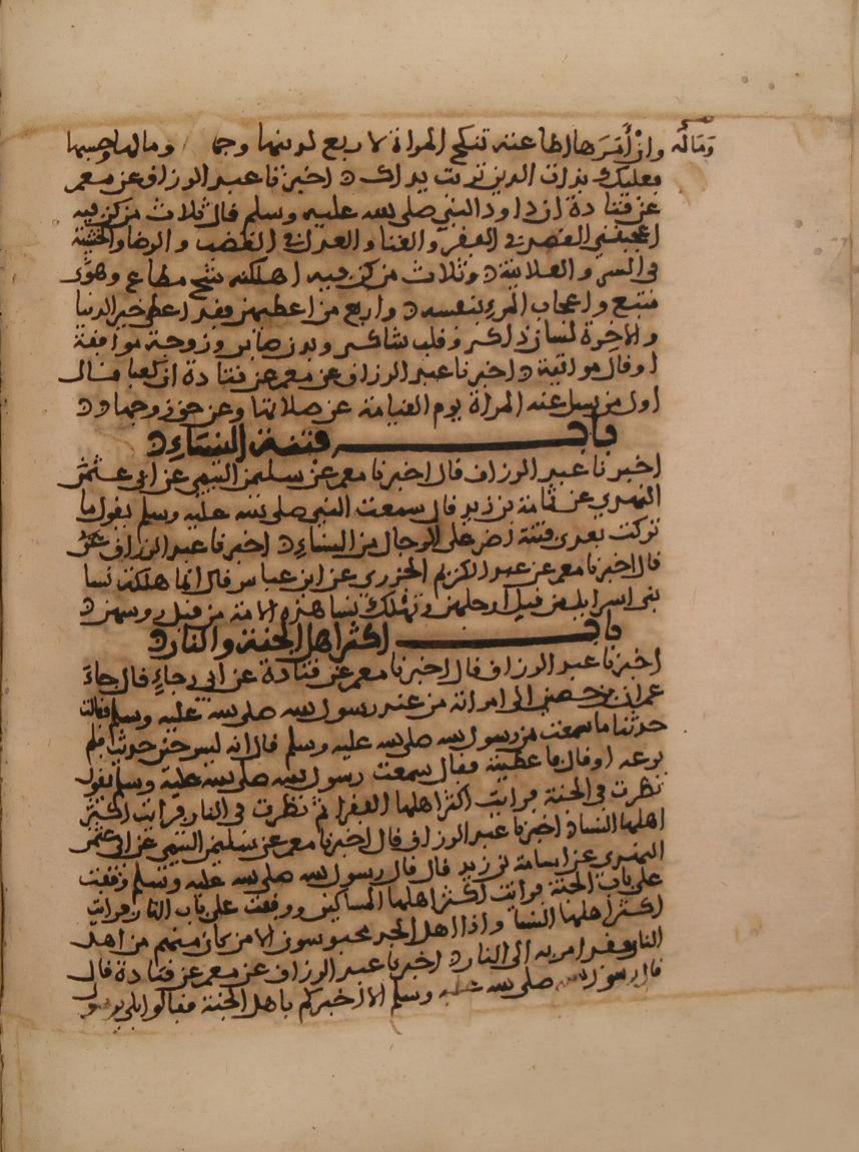 وماله وان أمرها اطاعته تنكح المراة لاربع لدينها وجما / ومالها وحسبها
فعليك بذات الدين تربت يداك ه اخبرنا عبد الرزاق عن معمر
عن قتادة ان داود النبي صلى الله عليه وسلم قال ثلاث من كن فيه
اعجبنني القصد في الفقر والغنا والعدل في الغضب والرضا والخشية
في السر والعلانية ه وثلاث من كن فيه اهلكنه شح مطاع وهوى
متبع واعجاب المرء بنفسه ه واربع من اعطيهن فقد اعطي خير الدنيا
والاخرة لسان ذاكر وقلب شاكر وبدن صابر وزوجة موافقة
او قال مواتية ه اخبرنا عبد الرزاق عن معمر عن قتادة ان كعبا قال
اول من يسل عنه المراة يوم القيامة عن صلاتها وعن حق زوجها ه ه
باب فتنة النساء ه
اخبرنا عبد الرزاق قال اخبرنا معمر عن سليمن التيمي عن ابي عثمن
النهدي عن اسامة بن زيد قال سمعت النبي صلى الله عليه وسلم يقول ما
تركت بعدي فتنة اضر على الرجال من النساء ه اخبرنا عبد الرزاق
قال اخبرنا معمر عن عبد الكريم الجزري عن ابن عباس قال انما هلكت نسا
بني اسرايل من قبل ارجلهن وتهلك نسا هذه الامة من قبل روسهن ه
باب اكثر اهل الجنة والنار ه
اخبرنا عبد الرزاق قال اخبرنا معمر عن قتادة عن ابي رجاء قال جاء
عمران بن حصين الى امراته من عند رسول الله صلى الله عليه وسلم فقالت
حدثنا ما سمعت من رسول الله صلى الله عليه وسلم قال انه ليس حين حديث فلم
تدعه او قال فاغضبته فقال سمعت رسول الله صلى الله عليه وسلم يقول
نظرت في الجنة فرايت اكثر اهلها الفقرا ثم نظرت في النار فرايت اكثر
اهلها النسا ه اخبرنا عبد الرزاق قال اخبرنا معمر عن سليمن التيمي عن ابي عثمن
النهدي عن اسامة بن زيد قال قال رسول الله صلى الله عليه وسلم وقفت
على باب الجنة فرايت اكثر اهلها المساكين ووقفت على باب النار فرايت
اكثر اهلها النسا واذا اهل الجد محبوسون الا من كان منهم من اهل
النار فقد امر به الى النار ه اخبرنا عبد الرزاق عن معمر عن قتادة قال
قال رسول الله صلى الله عليه وسلم الا اخبركم باهل الجنة فقالوا بلى